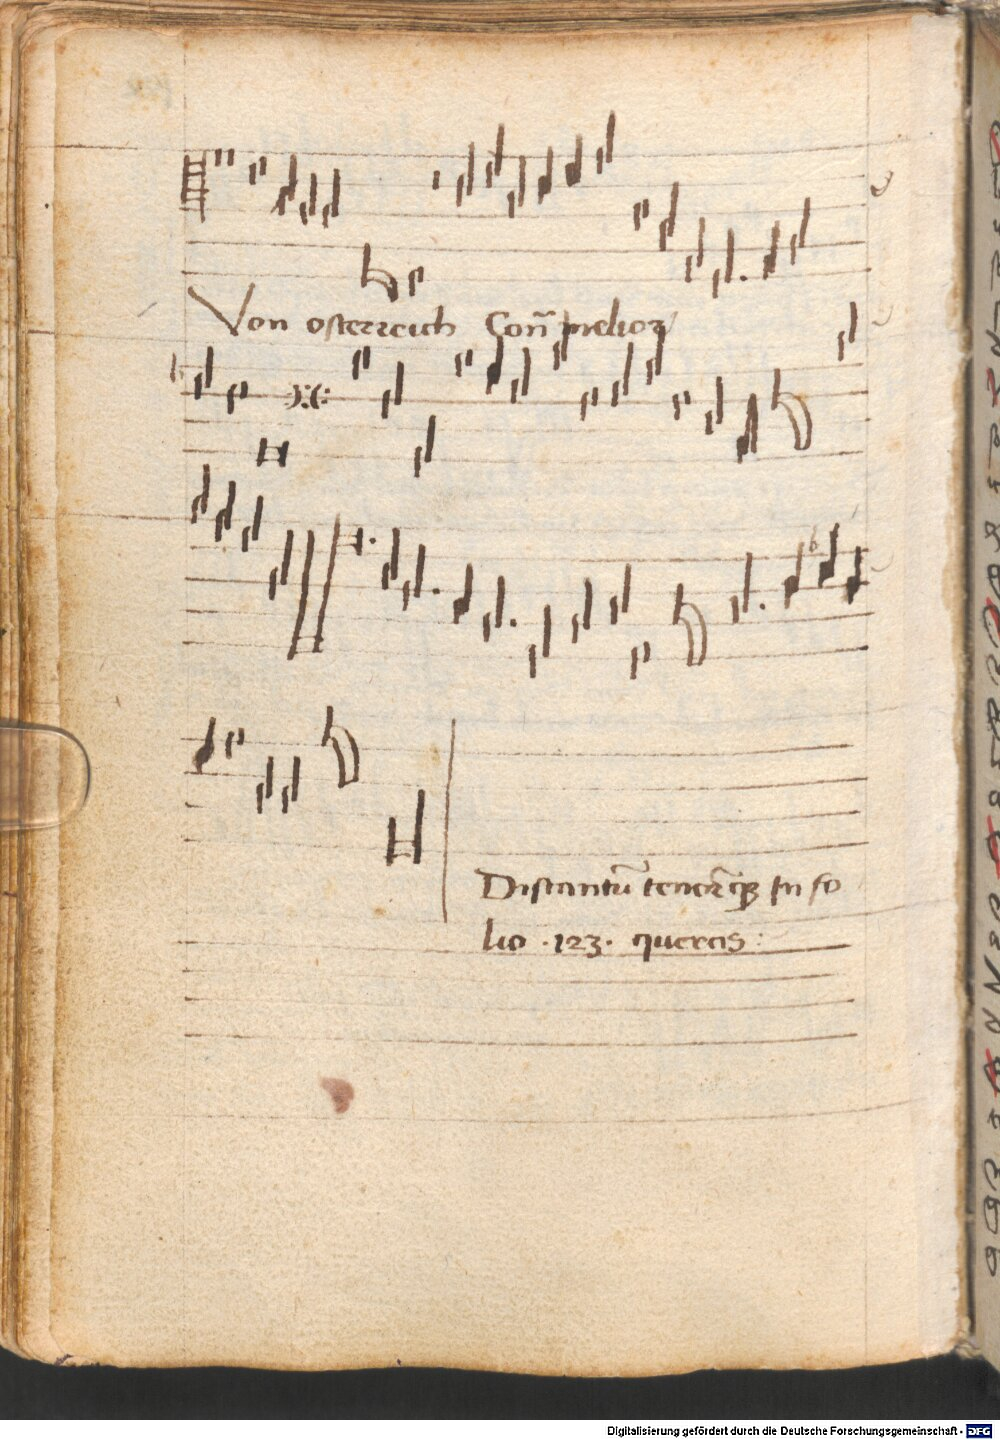 Von osterreich Coñ melior
Discantū tenorēqz In fo
lio .123. queras :
Digitalisierung gefördert durch die Deutsche Forschungsgemeinschaft - DFG